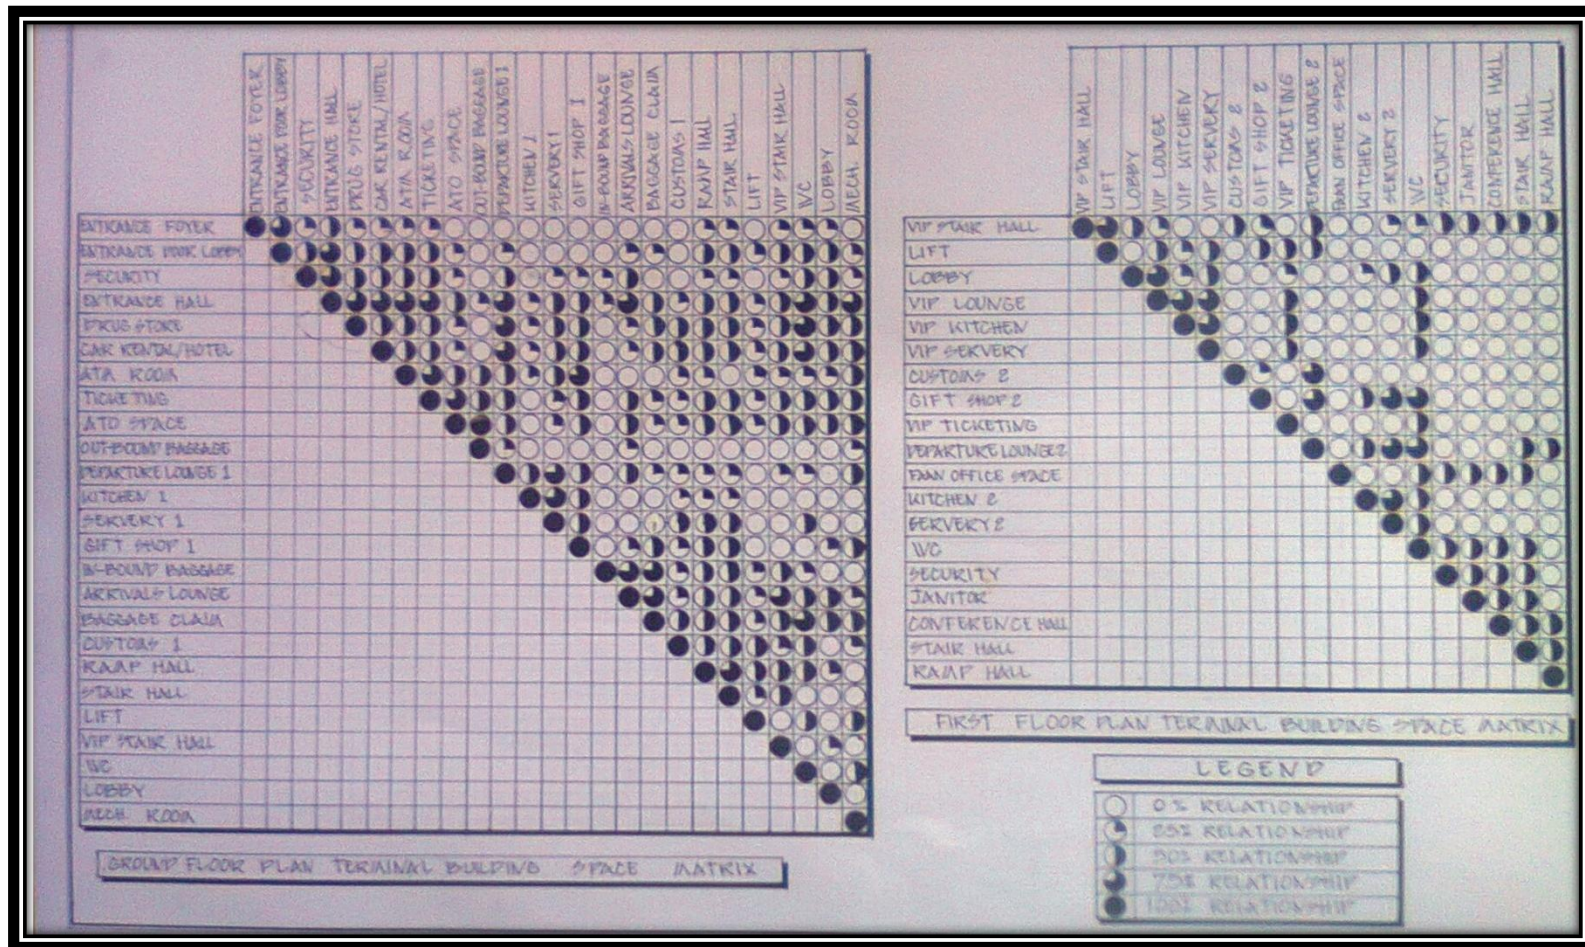 ENTRANCE FOYER
ENTRANCE POOR LOBBY
SECURITY
ENTRANCE HALL
DRUG STORE
CAR RENTAL/HOTEL
ATA ROOM
TICKETING
ATO SPACE
OUT-BOUND BAGGAGE
DEPARTURE LOUNGE 1
KITCHEN 1
SERVERY 1
GIFT SHOP 1
IN-BOUND BAGGAGE
ARRIVALS LOUNGE
BAGGAGE CLAIM
CUSTOMS 1
RAMP HALL
STAIR HALL
LIFT
VIP STAIR HALL
WC
LOBBY
MECH. ROOM
ENTRANCE FOYER
ENTRANCE POOR LOBBY
SECURITY
ENTRANCE HALL
DRUG STORE
CAR RENTAL/HOTEL
ATA ROOM
TICKETING
ATO SPACE
OUT-BOUND BAGGAGE
DEPARTURE LOUNGE 1
KITCHEN 1
SERVERY 1
GIFT SHOP 1
IN-BOUND BAGGAGE
ARRIVALS LOUNGE
BAGGAGE CLAIM
CUSTOMS 1
RAMP HALL
STAIR HALL
LIFT
VIP STAIR HALL
WC
LOBBY
MECH. ROOM
GROUND FLOOR PLAN TERMINAL BUILDING SPACE MATRIX
VIP STAIR HALL
LIFT
LOBBY
VIP LOUNGE
VIP KITCHEN
VIP SERVERY
CUSTOMS 2
GIFT SHOP 2
VIP TICKETING
DEPARTURE LOUNGE 2
FAAN OFFICE SPACE
KITCHEN 2
SERVERY 2
WC
SECURITY
JANITOR
CONFERENCE HALL
STAIR HALL
RAMP HALL
VIP STAIR HALL
LIFT
LOBBY
VIP LOUNGE
VIP KITCHEN
VIP SERVERY
CUSTOMS 2
GIFT SHOP 2
VIP TICKETING
DEPARTURE LOUNGE 2
FAAN OFFICE SPACE
KITCHEN 2
SERVERY 2
WC
SECURITY
JANITOR
CONFERENCE HALL
STAIR HALL
RAMP HALL
FIRST FLOOR PLAN TERMINAL BUILDING SPACE MATRIX
LEGEND
0% RELATIONSHIP
25% RELATIONSHIP
50% RELATIONSHIP
75% RELATIONSHIP
100% RELATIONSHIP